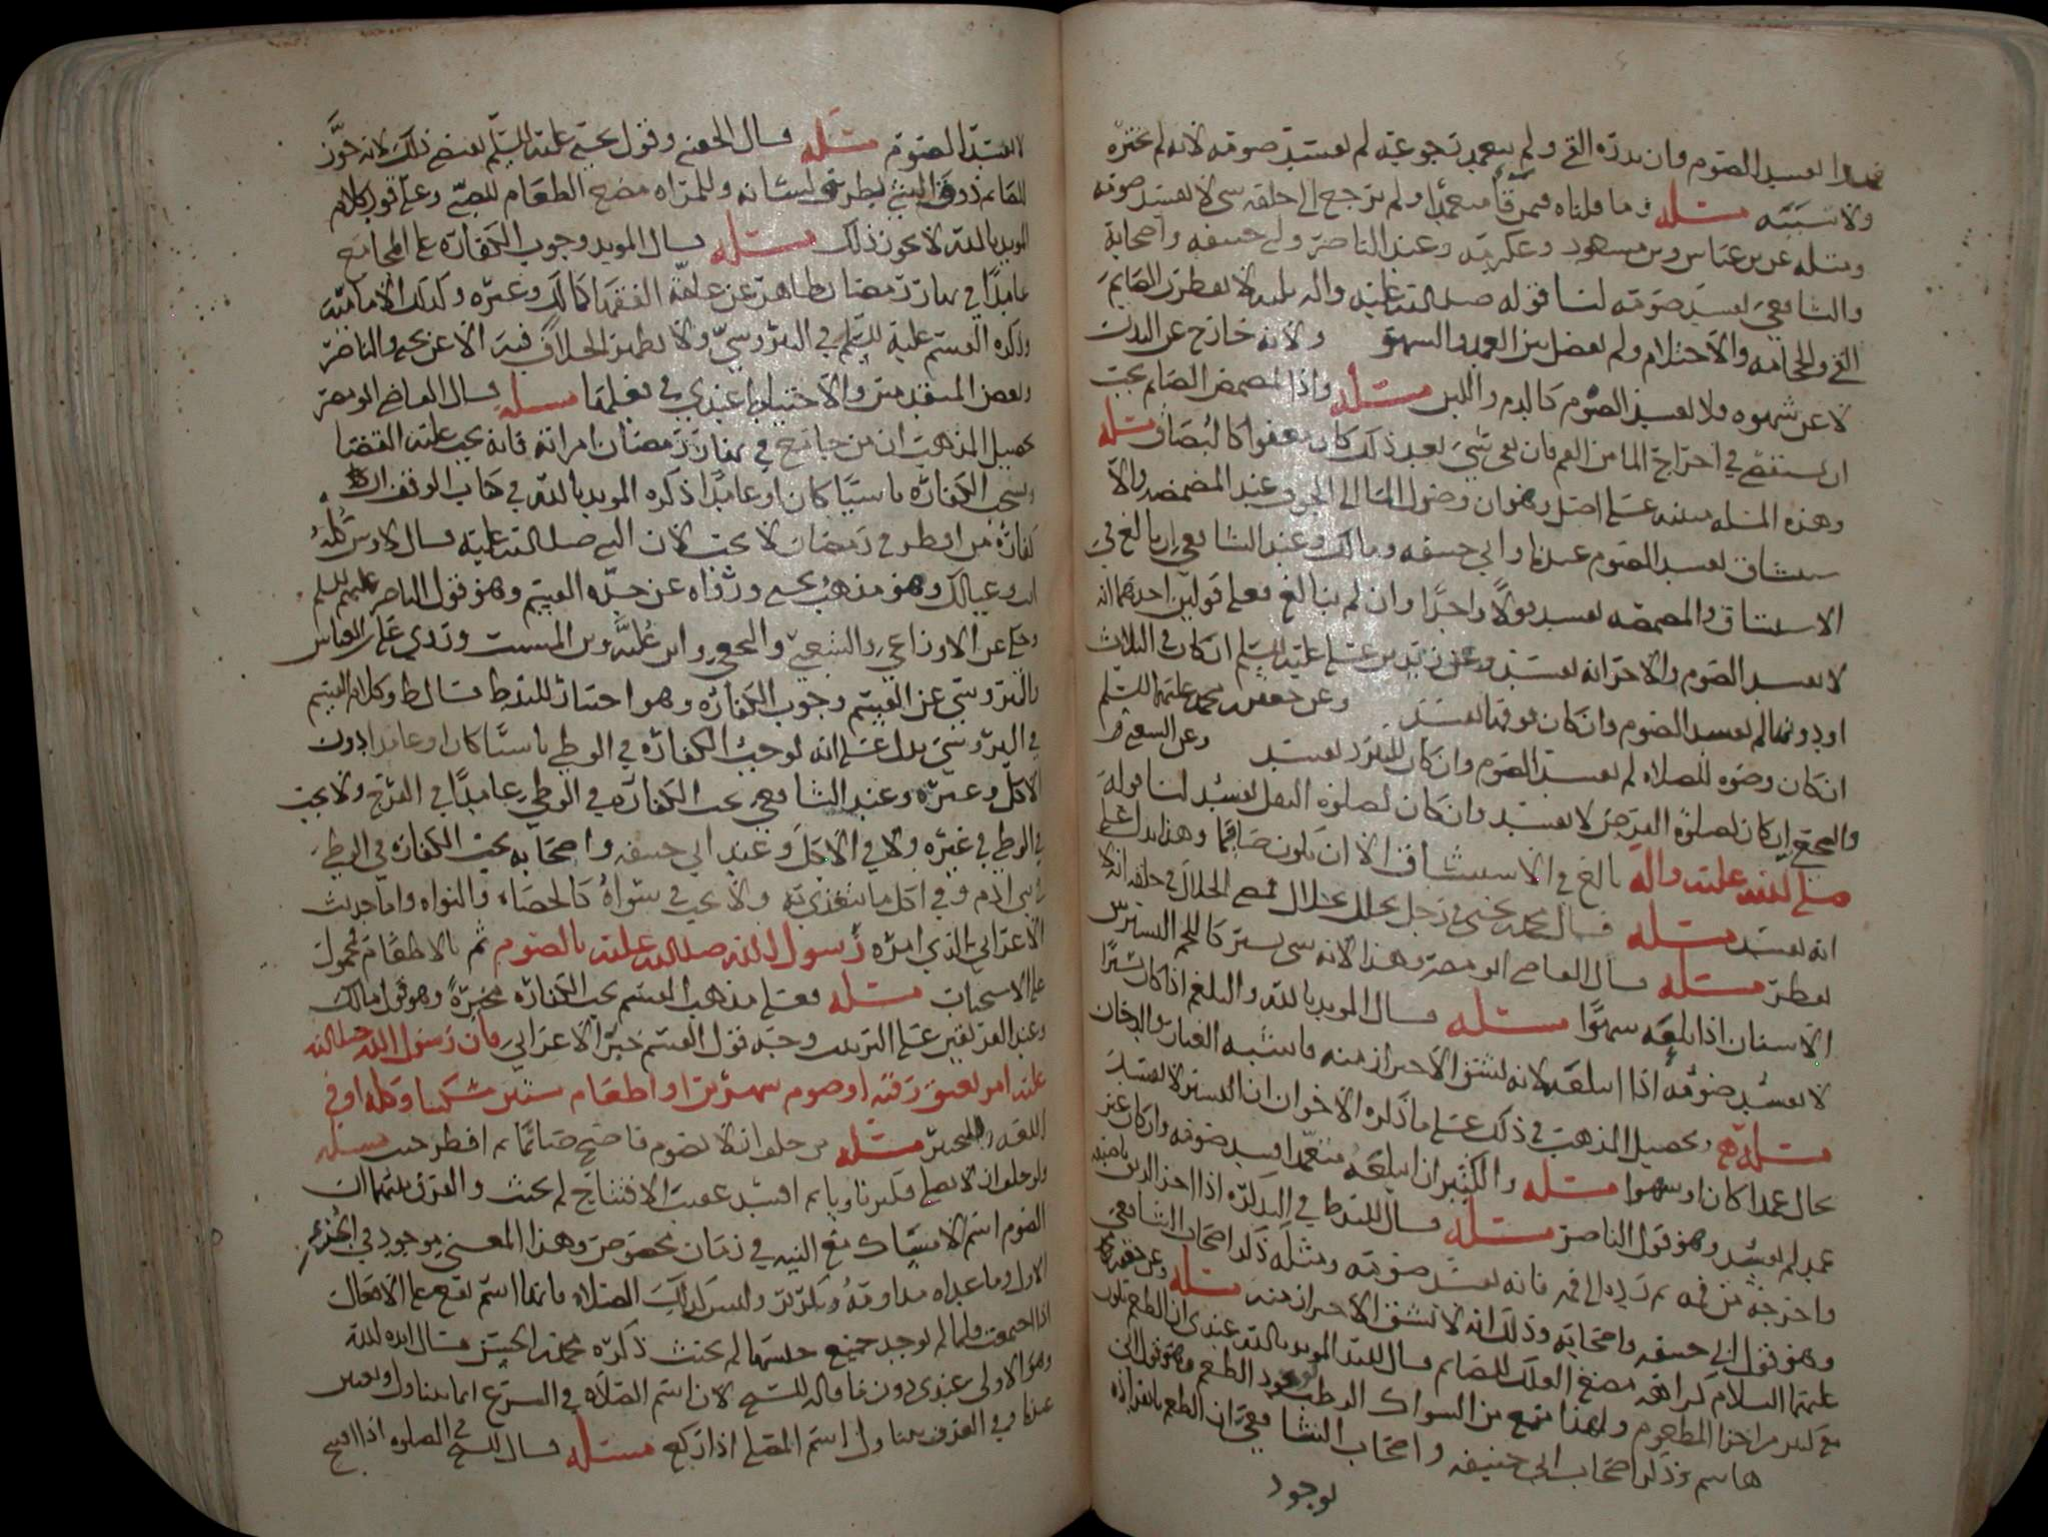 يفسد الصوم وان بدره القي ولم يتعمد رجوعه لم يفسد صومه لانه لم يختره
ولا سببه مسئله وما قلناه فيمن قاء متعمدا ولم يرجع الى حلقه شي لا يفسد صومه
ومثله عن بن عباس وبن مسعود وعكرمه وعند الناصر وابي حنيفه واصحابه
والشافعي يفسد صومه لنا قوله صلى الله عليه واله ثلثه لا يفطرن الصايم
القي والحجامه والاحتلام ولم يفصل بين العمد والسهو ولانه خارج عن البدن
لا عن شهوه فلا يفسد الصوم كالدم واللبن مسئله واذا تمضمض الصايم يجب
ان يستقصي في اخراج الما من الفم فان بقي شي بعد ذلك كان معفوا كالبصاق مسئله
وهذه المسئله مبنيه على اصل وهو ان وصول الما الى الجوف عند المضمضه والا
ستنشاق يفسد الصوم عندنا وابي حنيفه ومالك وعند الشافعي ان بالغ في
الاستنشاق والمضمضه يفسد قولا واحدا وان لم يبالغ فعلى قولين احدهما انه
لا يفسد الصوم والاخر انه يفسد وعن زيد بن علي عليه السلم ان كان في الثلاث
او دونها لم يفسد الصوم وان كان فوقها يفسد وعن جعفر بن محمد عليهما السلم
ان كان وضوه للصلاه لم يفسد الصوم وان كان للتبرد يفسد وعن الشعبي
والنخعي ان كان لصلوة الفرض لا يفسد وان كان لصلوة النفل يفسد لنا قوله
صلى الله عليه واله بالغ في الاستنشاق الا ان تكون صايما وهذا يدل على
انه يفسد مسئله قال محمد بن يحيى في رجل تخلل بخلال فمضى الخلال في حلقه انه لا
يفطر مسئله قال القاضي ابو مضر وهذا لانه شي يستر كاللحم اليسير بين
الاسنان اذا بلعه سهوا مسئله قال المويد بالله والبلغم اذا كان يسيرا
لا يفسد صومه اذا ابتلعه لانه يشق الاحتراز منه فاشبه الغبار والدخان
مسئله وتحصيل المذهب في ذلك على ما ذكره الاخوان ان اليسير لا يفسد
بحال عمدا كان او سهوا مسئله والكثير ان ابتلعه متعمدا افسد صومه وان كان غير
عمد لم يفسد وهو قول الناصر مسئله قال في التذكره اذا اخذ الريق باصبعه
واخرجه من فمه ثم رده الى فمه فانه يفسد صومه ومثله ذكر اصحاب الشافعي
وهو قول ابي حنيفه واصحابه وذلك انه لا يشق الاحتراز منه مسئله وعن جعفر
عليهما السلام كراهه مضغ العلك للصايم قال المويد بالله عندي ان الطعم يكون
مع كثير من اجزا المطعوم ولهذا منع من السواك الرطب لوجود الطعم وهو قول ابي
هاشم وذكر اصحاب ابي حنيفه واصحاب الشافعي ان الطعم بانفراده
لوجود
لا يفسد الصوم مسئله قال الحقيني وقول يحيى عليه السلم يقتضي ذلك لانه جوز
للصايم ذوق الشي بطرف لسانه وللمراه مضغ الطعام للصبي وعلى قود كلام
المويد بالله لا يجوز ذلك مسئله قال المويد وجوب الكفاره على المجامع
عامدا في نهار رمضان ظاهر عن عامه الفقها كمالك وغيره وكذلك الاماميه
وذكره القسم عليه السلم في النيروسي ولا يظهر الخلاف فيه الا عن يحيى والناصر
وبعض المتقدمين والاحتياط عندي في فعلها مسئله قال القاضي ابو مضر
تحصيل المذهب ان من جامع في نهار رمضان امراته فانه يجب عليه القضا
ويستحب الكفاره ناسيا كان او عامدا ذكره المويد بالله في كتاب الوقف ان
كفارة من افطر في رمضان لا يجب لان النبي صلى الله عليه قال لاوس كله
انت وعيالك وهو مذهب يحيى ورواه عن جده القسم وهو قول الناصر عليهم السلم
وحكى عن الاوزاعي والشعبي والنخعي وابن عليه وبن المسيب وروى
النيروسي عن القسم وجوب الكفاره وهو اختيار قال ط وكلام القسم
في النيروسي يدل على انه يوجب الكفاره في الوطي ناسيا كان او عامدا دون
الاكل وغيره وعند الشافعي يجب الكفاره في الوطي عامدا في الفرج ولا يجب
في الوطي في غيره ولا في الاكل وعند ابي حنيفه واصحابه يجب الكفاره في الوطي
في بني ادم وفي اكل ما يتغذى به ولا يجب في سواه كالحصاه والنواه واما حديث
الاعرابي الذي امره رسول الله صلى الله عليه بالصوم ثم بالاطعام فمحمول
على الاستحباب مسئله فعلى مذهب القسم يجب الكفاره مخيرة وهو قول مالك
وعند الفريقين على الترتيب وجه قول القسم خبر الاعرابي فان رسول الله صلى الله
عليه امر بعتق رقبه او صوم شهرين او اطعام ستين مسكينا وكلمه او في
اللغه للتخيير مسئله من حلف انه لا يصوم فاصبح صايما ثم افطر حنث مسئله
ولو حلف ان لا يصلي فكبر ناويا ثم افسد عقيب الافتتاح لم يحنث والفرق بينهما ان
الصوم اسم لامساك مع النيه في زمان مخصوص وهذا المعنى موجود في الجزء
الاول وما عداه مداومة وتكرير وليس كذلك الصلاه فانها اسم تقع على الافعال
اذا اجتمعت فلما لم يوجد جميع جنسها لم يحنث ذكره محمد بن الحسن قال ايده الله
وهو الاولى عندي دون ما قاله لان اسم الصلاه في الشرع انما يتناول
وفي العرف يتناول اسم المصلي اذا ركع مسئله قال في الصلوه اذا افتتح